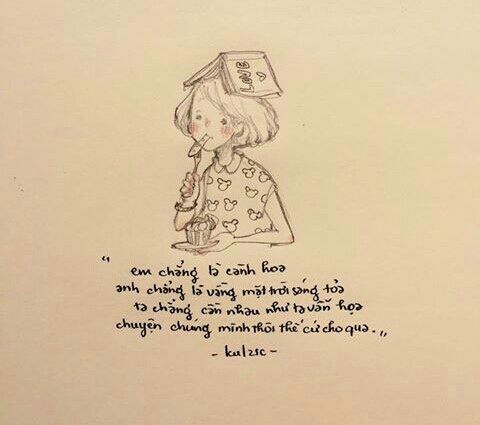 LOVE
"em chẳng là cành hoa
anh chẳng là vầng mặt trời sáng tỏa
ta chẳng cần nhau như ta vẫn họa
chuyện chung mình thôi thế cứ cho qua."
- kulzsc -